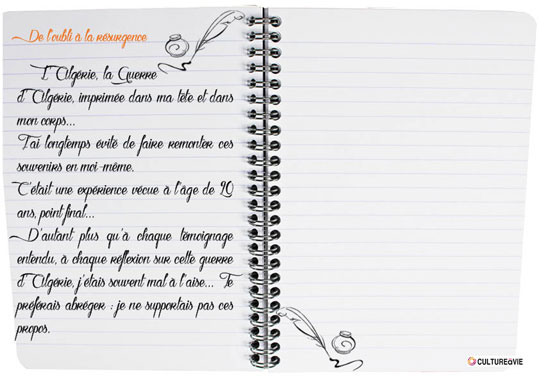 De l'oubli à la résurgence
L'Algérie, la Guerre
d'Algérie, imprimée dans ma tête et dans
mon corps...
J'ai longtemps évité de faire remonter ces
souvenirs en moi-même.
C'était une expérience vécue à l'âge de 20
ans, point final...
D'autant plus qu'à chaque témoignage
entendu, à chaque réflexion sur cette guerre
d'Algérie, j'étais souvent mal à l'aise... Je
préférais abréger : je ne supportais pas ces
propos.
CULTUREàVIE